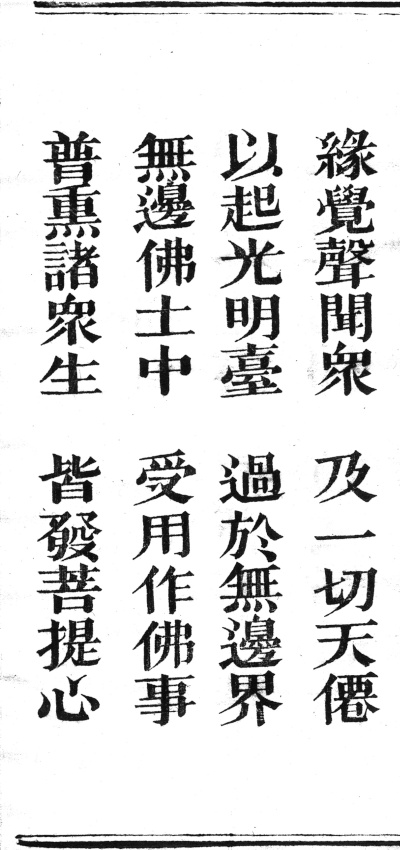 緣覺聲聞衆　及一切天僊
以起光明臺　過於無邊界
無邊佛土中　受用作佛事
普熏諸衆生　皆發菩提心